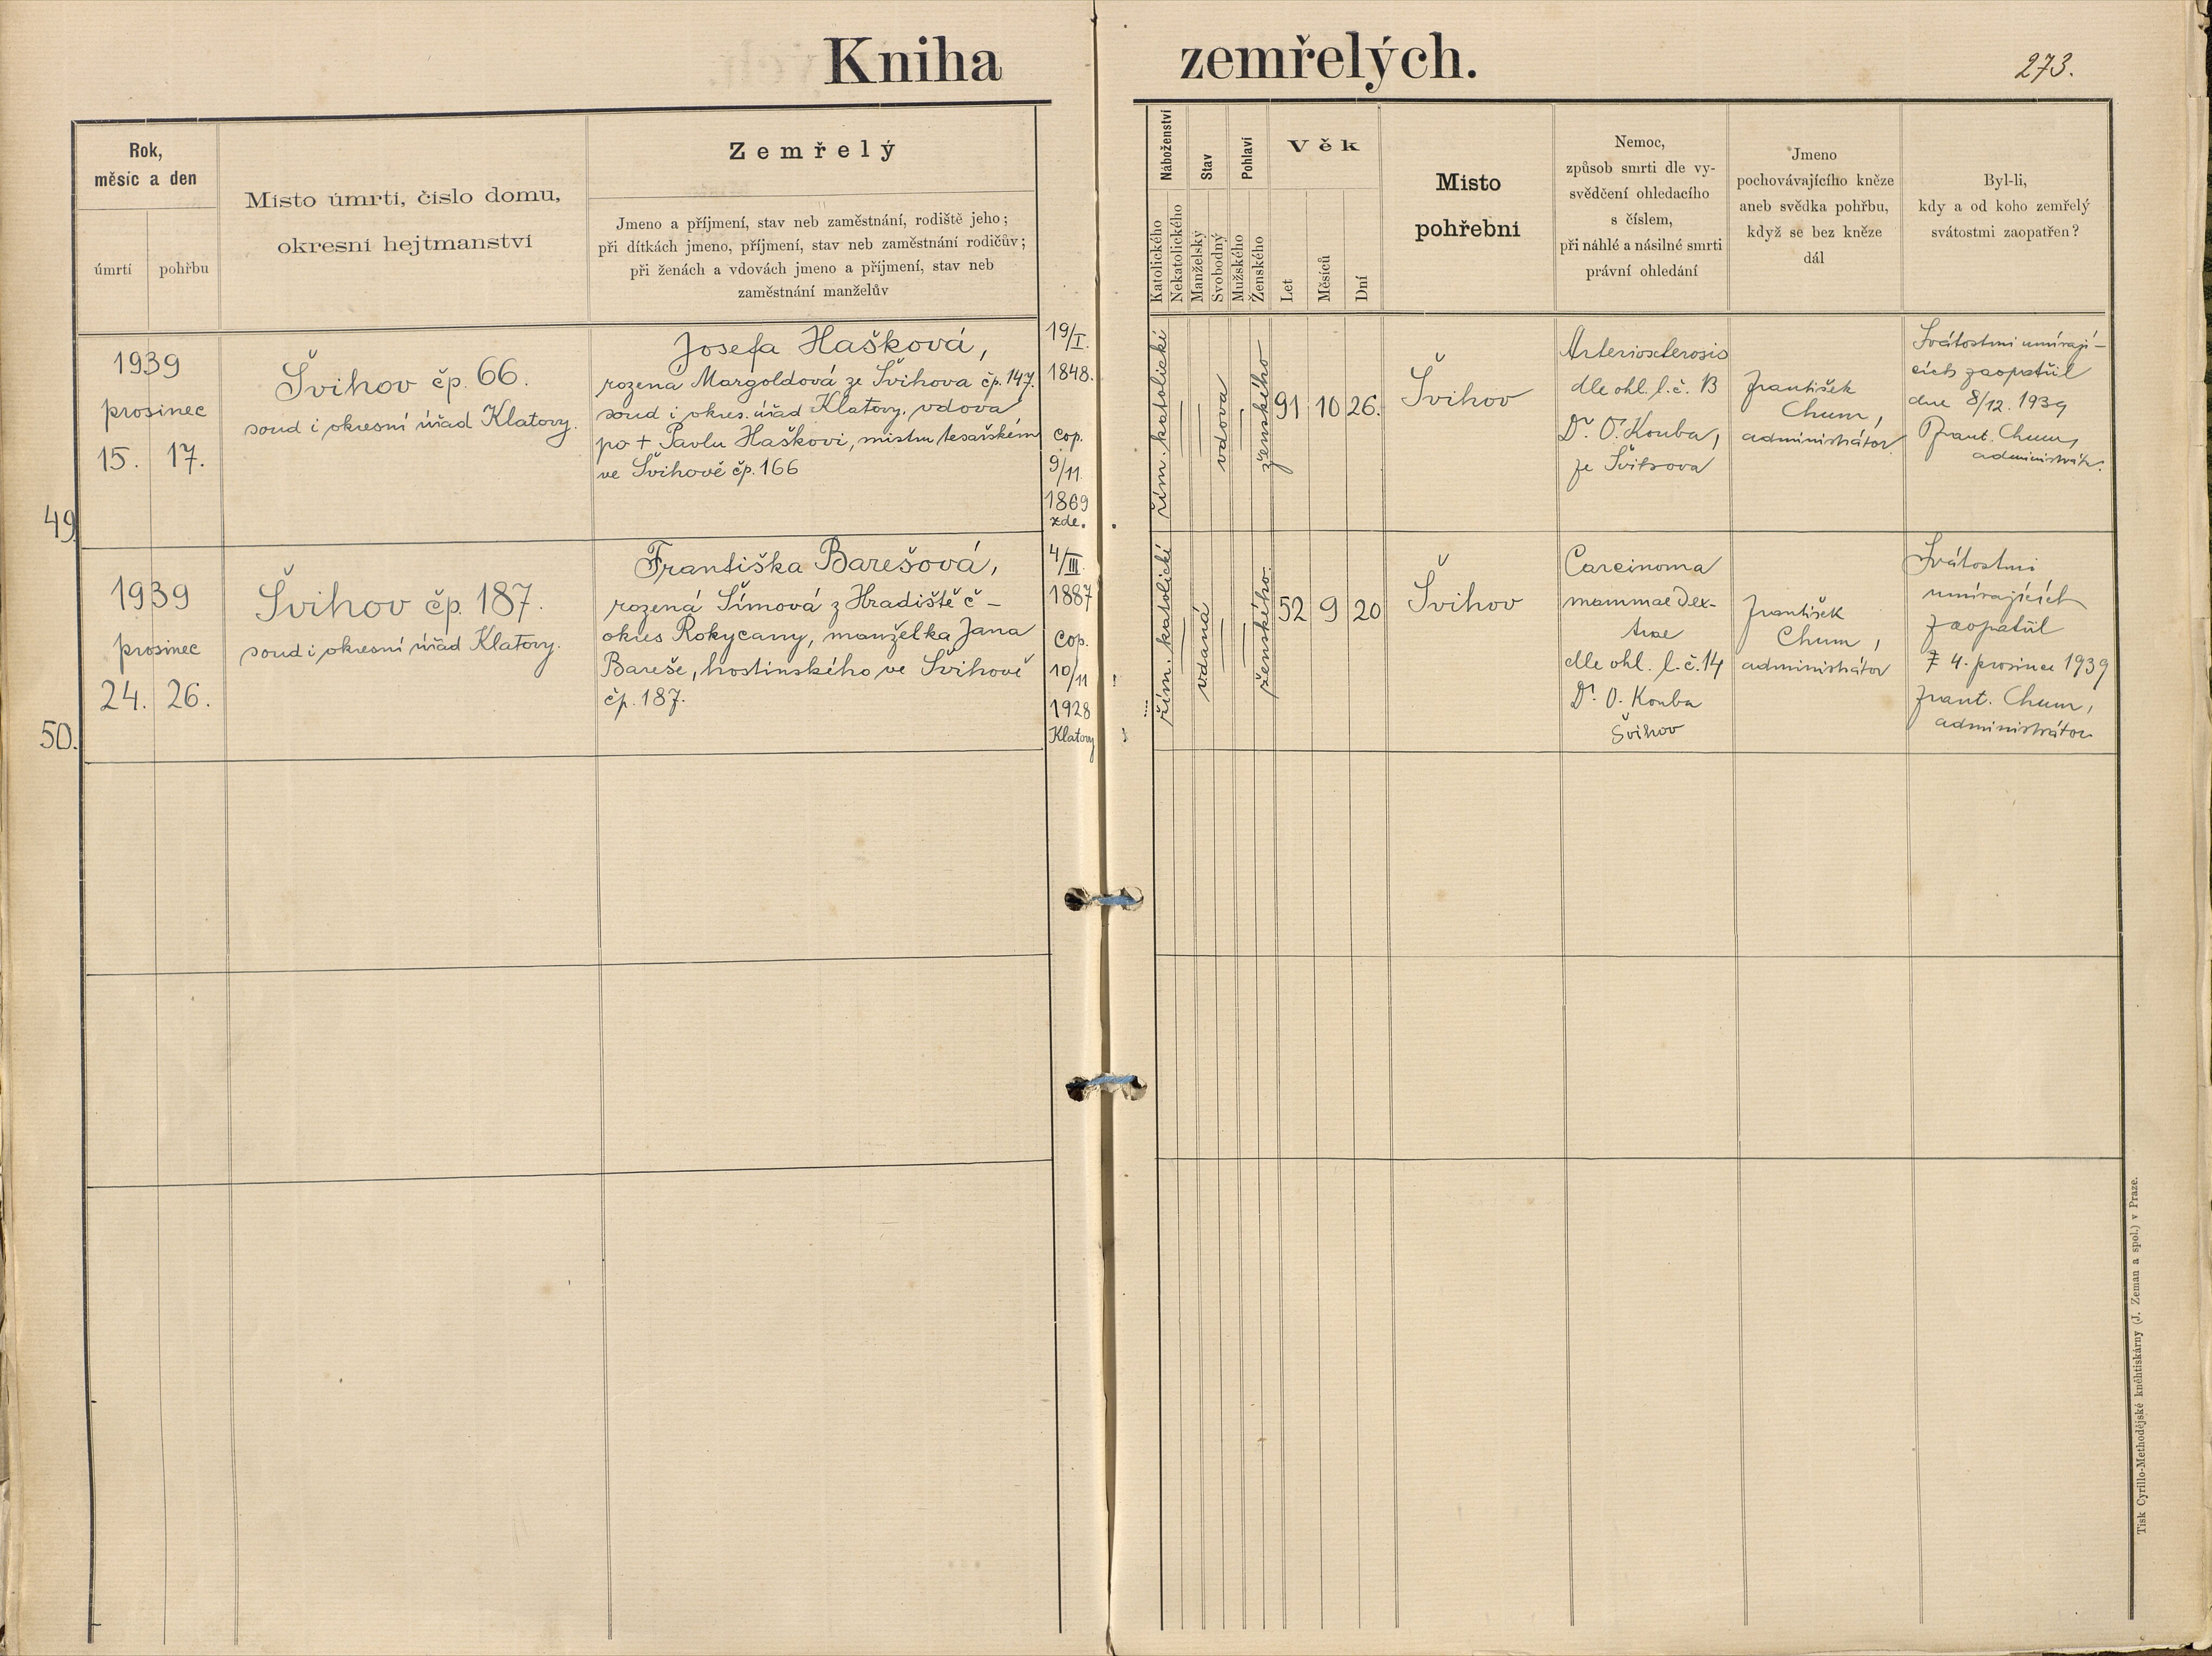 Kniha zemřelých.
273.
Rok,
měsíc a den
úmrtí
pohřbu
Místo úmrtí, číslo domu,
okresní hejtmanství
Zemřelý
Jmeno a příjmení, stav neb zaměstnání, rodiště jeho;
při dítkách jmeno, příjmení, stav neb zaměstnání rodičův;
při ženách a vdovách jmeno a příjmení, stav neb
zaměstnání manželův
Náboženství
Katolického
Nekatolického
Stav
Manželský
Svobodný
Pohlaví
Mužského
Ženského
Věk
Let
Měsíců
Dní
Místo
pohřební
Nemoc,
způsob smrti dle vy-
svědčení ohledacího
s číslem,
při náhlé a násilné smrti
právní ohledání
Jmeno
pochovávajícího kněze
aneb svědka pohřbu,
když se bez kněze
dál
Byl-li,
kdy a od koho zemřelý
svátostmi zaopatřen?
49.
1939
prosinec
15. 17.
Švihov čp. 66.
soud i okresní úřad Klatovy.
Josefa Hašková,
rozená Margoldová ze Švihova čp. 147.
soud i okres. úřad Klatovy, vdova
po + Pavlu Haškovi, mistru tesařském
ve Švihově čp. 166
19/I.
1848.
cop.
9/11.
1869
zde.
řím. katolické
vdova
ženského
91 10 26.
Švihov
Arteriosclerosis
dle ohl. l. č. 13
Dr. O. Kouba,
ze Švihova
František
Chum,
administrátor.
Svátostmi umírají-
cích zaopatřil
dne 8/12. 1939
Frant. Chum,
administrátor.
50.
1939
prosinec
24. 26.
Švihov čp. 187.
soud i okresní úřad Klatovy.
Františka Barešová,
rozená Šímová z Hradiště č –
okres Rokycany, manželka Jana
Bareše, hostinského ve Švihově
čp. 187.
4/III.
1887
cop.
10/11
1928
Klatovy
řím. katolické
vdaná
ženského.
52 9 20
Švihov
Carcinoma
mammae dex-
trae
dle ohl. l. č. 14
Dr. O. Kouba
Švihov
František
Chum,
administrátor
Svátostmi
umírajících
zaopatřil
4. prosince 1939
Frant. Chum,
administrátor
Tisk Cyrillo-Methodějské kněhtiskárny (J. Zeman a spol.) v Praze.